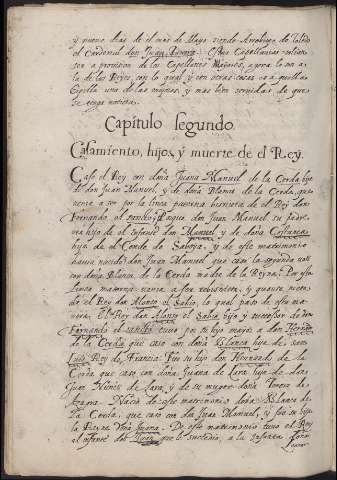 y nueve dias de el mes de Mayo siendo Arzobispo de Toledo
el Cardenal don Juan Estas Capellanias estan
son a provision de los Capellanes Mayores, agora lo son a
la de los Reyes, con lo qual, y con otras cosas es aquella
Capilla una de las insignes, y mas bien servidas de que
se tenga noticia.
Capitulo segundo.
Casamiento, hijos, y muerte de el Rey.
Caso el Rey con doña Juana Manuel de la Cerda hija
de don Juan Manuel, y de doña Blanca de la Cerda, que
venia a ser por la linea paterna bisnieta de el Rey don
Fernando el porque don Juan Manuel su padre
era hijo de el infante don Manuel, y de doña Costanca
hija de el Conde de Saboya, y de este matrimonio
havia nacido don Juan Manuel que caso la segunda vez
con doña Blanca de la Cerda madre de la Reyna. Por esta
linea materna venia a ser rebisnieta, y quarta nieta
de el Rey don Alonso el Sabio, lo qual paso de esta ma
nera. El Rey don Alonso el Sabio hijo y sucessor de don
Fernando el santo tuvo por su hijo mayor a don Fernando
de la Cerda que caso con doña Blanca hija de san
Luis Rey de Francia. Fue su hijo don Fernando de la
Cerda que caso con doña Juana de Lara hija de don
Juan Nuñez de Lara, y de su muger doña Teresa de
Azagra. Nacio de este matrimonio doña Blanca de
la Cerda, que caso con don Juan Manuel, y fue su hija
la Reyna doña Juana. De este matrimonio tuvo el Rey
al infante don Juan que le sucedio, a la infanta doña